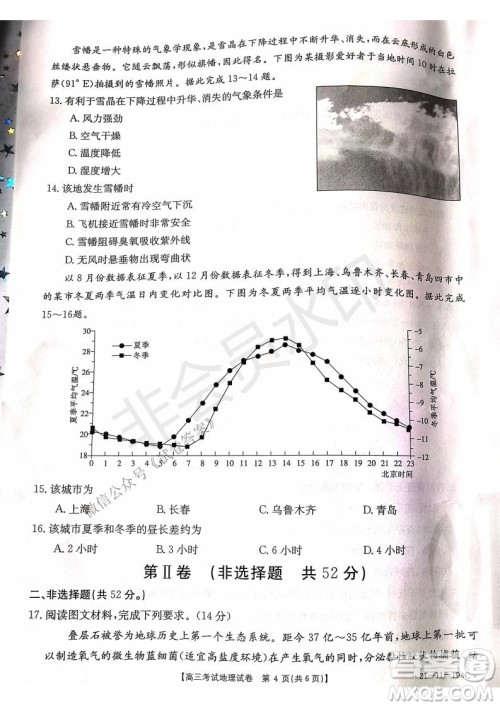 雪幡是一种特殊的气象学现象，是雪晶在下降过程中升华、消失，而在云底形成的白色
丝缕状悬垂物。它随云飘荡，形似旗幡。下图为某摄影爱好者于当地时间10时在拉
萨(91°E)拍摄到的雪幡照片。据此完成13～14题。
13. 有利于雪晶在下降过程中升华、消失的气象条件是
A. 风力强劲
B. 空气干燥
C. 温度降低
D. 湿度增大
14. 该地发生雪幡时
A. 雪幡附近常有冷空气下沉
B. 飞机接近雪幡时震动较小
C. 雪幡阻碍臭氧吸收紫外线
D. 无风时悬垂物也出现弯曲
以8月份数据表征夏季，以12月份数据表征冬季，得到上海、乌鲁木齐、长春、青岛四市中
的某市冬夏两季气温日内变化对比图。下图为该城市冬夏两季平均气温逐小时变化。据此完成
15～16题。
30
28
26
24
22
20
18
夏季平均气温/℃
夏季
冬季
-5
-6
-7
-8
-9
-10
-11
-12
冬季平均气温/℃
0 1 2 3 4 5 6 7 8 9 10 11 12 13 14 15 16 17 18 19 20 21 22 23
北京时间
15. 该城市为
A. 上海 B. 长春 C. 乌鲁木齐 D. 青岛
16. 该城市夏季和冬季的昼长差约为
A. 2小时 B. 3小时 C. 4小时 D. 6小时
第Ⅱ卷 (非选择题 共52分)
二、非选择题(共52分。)
17. 阅读图文材料，完成下列要求。(14分)
叠层石被誉为地球历史上第一个生态系统。距今37亿～35亿年前，地球上出现了
可以制造氧气的微生物蓝细菌(适宜高温环境)
在产生氧气的同时
【高三考试地理试卷 第4页(共6页)】
非会员水印
微信公众号《试卷答案》